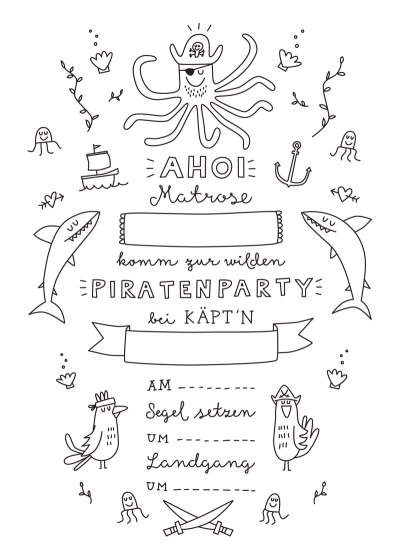 AHOI
Matrose
komm zur wilden
PIRATENPARTY
bei KÄPT'N
AM
Segel setzen
UM
Landgang
UM